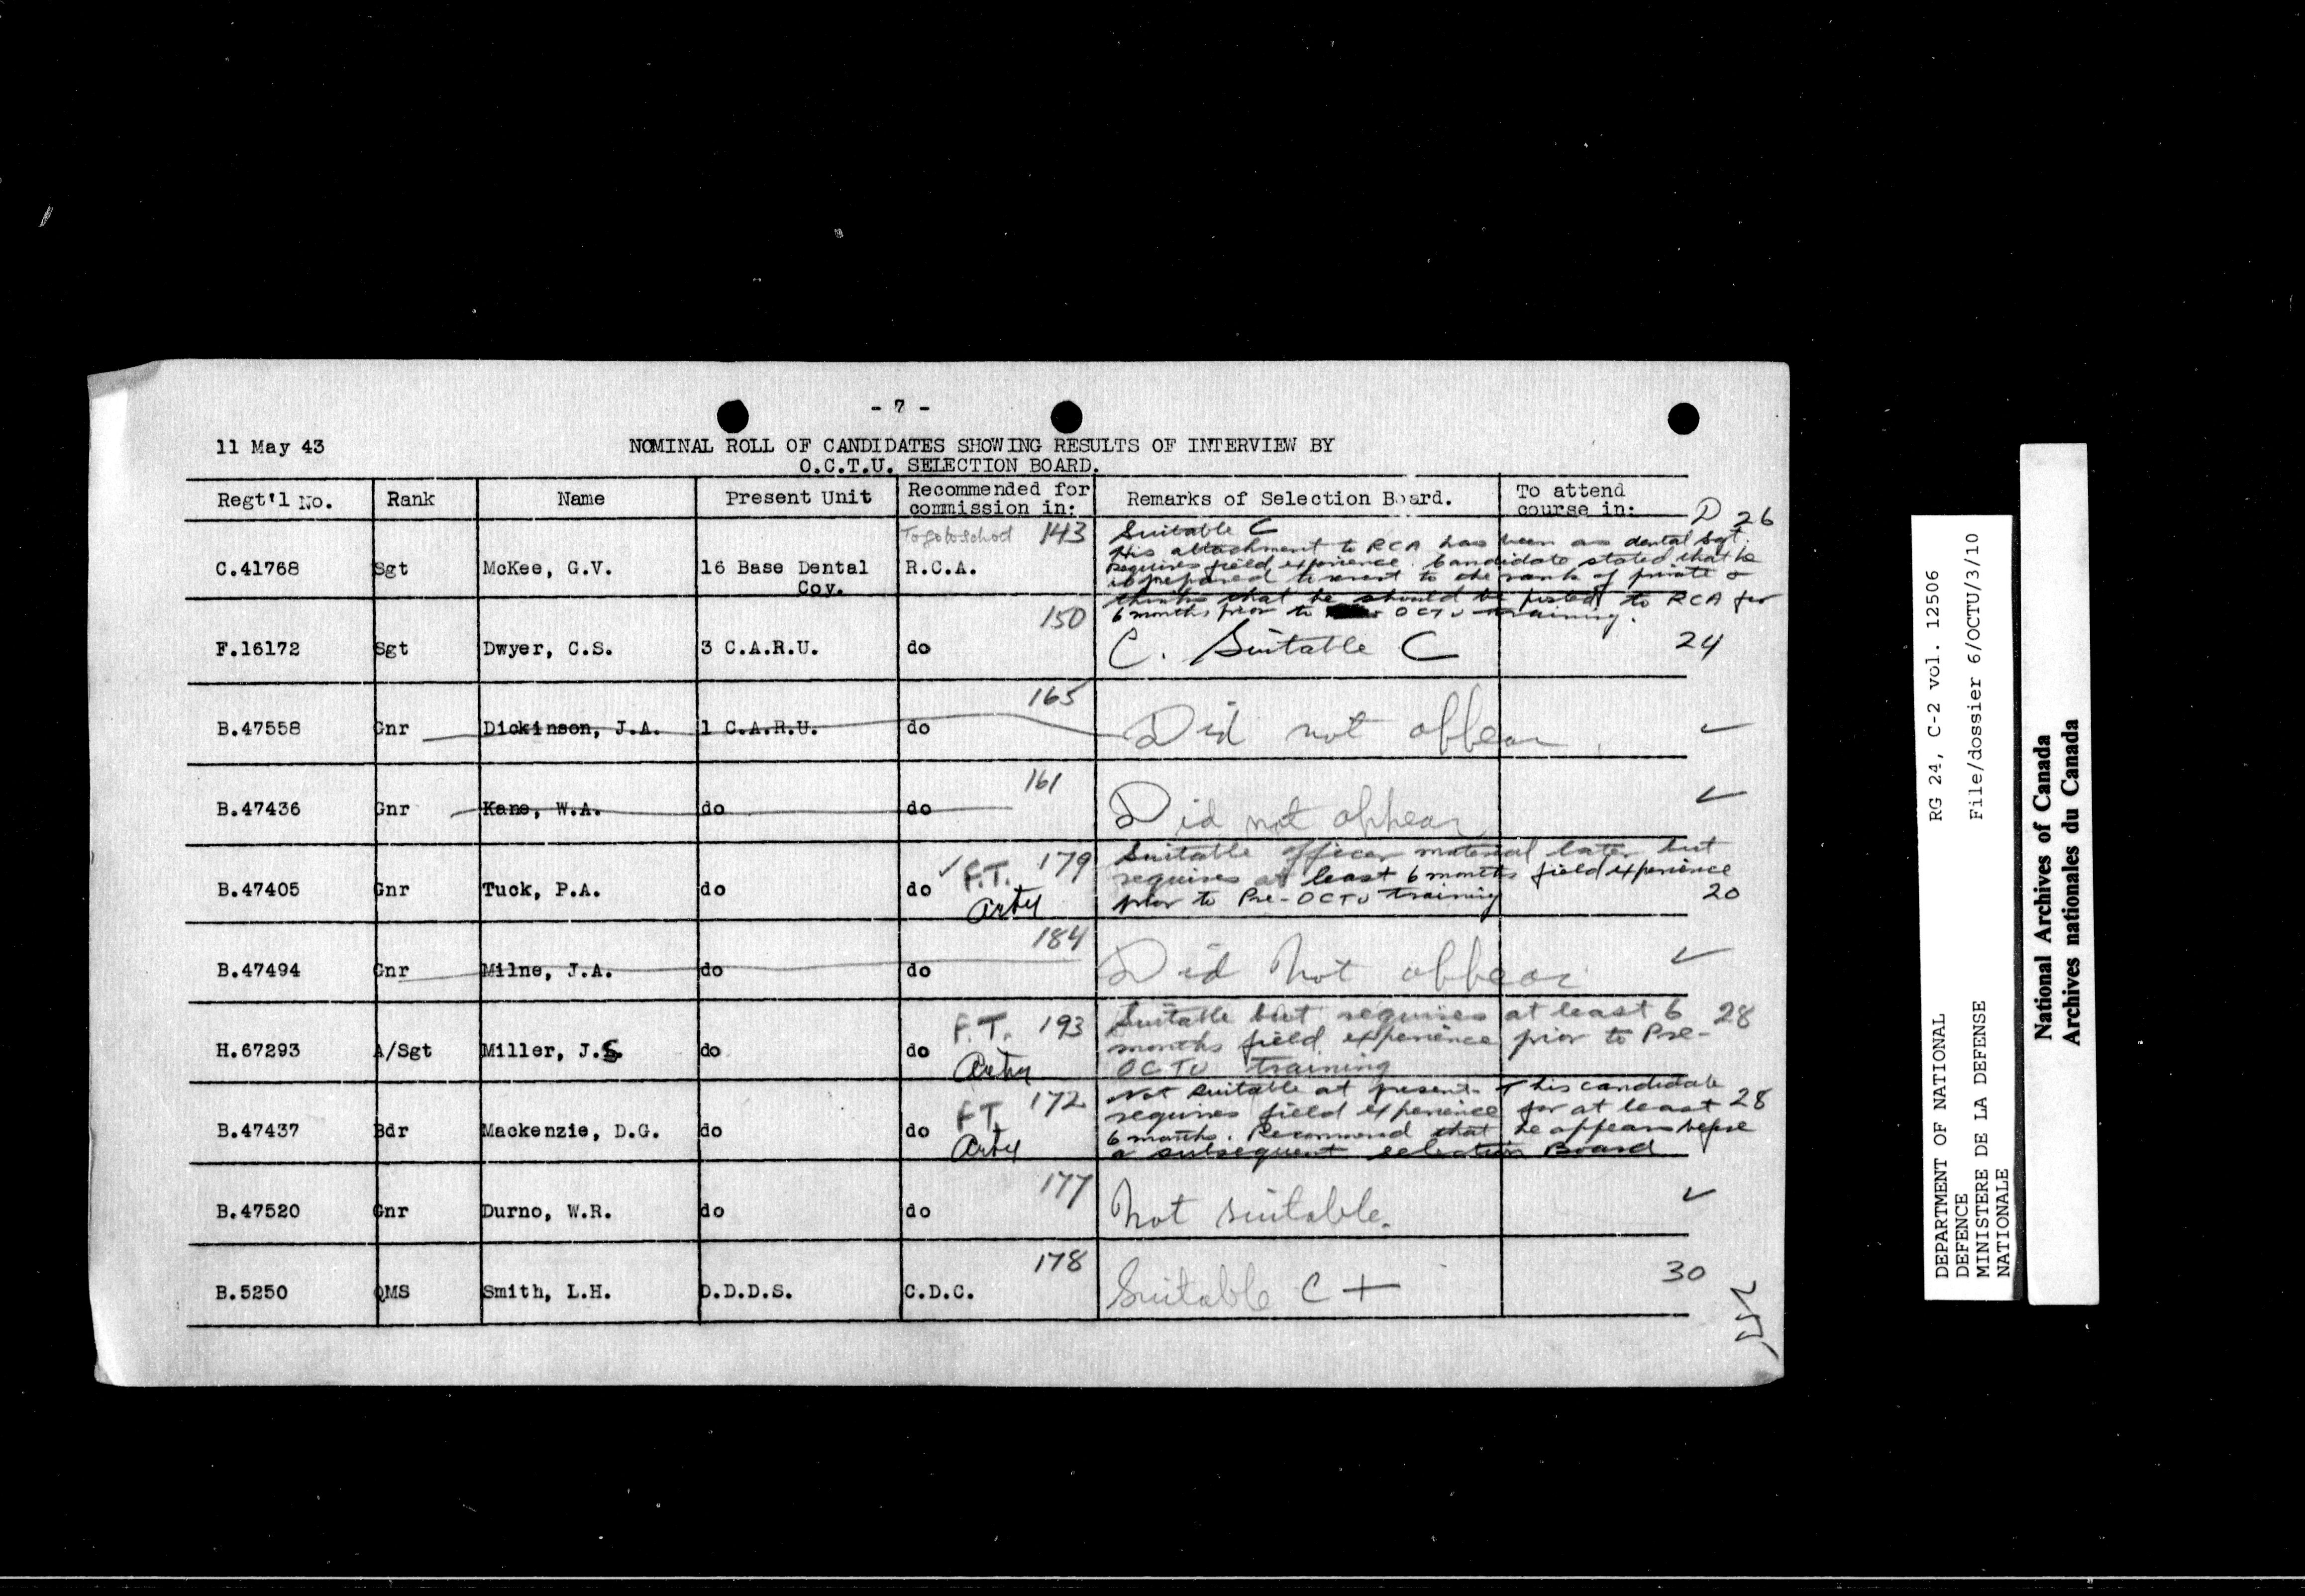 - 7 -
11 May 43
NOMINAL ROLL OF CANDIDATES SHOWING RESULTS OF INTERVIEW BY
O.C.T.U. SELECTION BOARD.
Regt'l No. Rank Name Present Unit Recommended for commission in: Remarks of Selection Board. To attend course in:
D 26
To go to school 143
C.41768 Sgt McKee, G.V. 16 Base Dental Coy. R.C.A.
Suitable C
His attachment to RCA has been as dental Sgt.
Requires field experience. Candidate stated that he
is prepared to revert to the rank of private &
thinks that he should be posted to RCA for
6 months prior to OCTU training.
150
F.16172 Sgt Dwyer, C.S. 3 C.A.R.U. do C. Suitable C 24
165
B.47558 Gnr Dickinson, J.A. 1 C.A.R.U. do Did not appear ✓
161
B.47436 Gnr Kane, W.A. do do Did not appear ✓
B.47405 Gnr Tuck, P.A. do do ✓ F.T. 179
Arty
Suitable officer material later but
requires at least 6 months field experience
prior to Pre-OCTU training 20
184
B.47494 Gnr Milne, J.A. do do Did not appear ✓
H.67293 A/Sgt Miller, J.S. do do F.T. 193
Arty
Suitable but requires at least 6 28
months field experience prior to Pre-
OCTU training
B.47437 Bdr Mackenzie, D.G. do do FT 172
Arty
Not suitable at present. This candidate
requires field experience for at least 28
6 months. Recommend that he appears before
a subsequent selection Board
177
B.47520 Gnr Durno, W.R. do do Not suitable. ✓
178
B.5250 QMS Smith, L.H. D.D.D.S. C.D.C. Suitable C + 30
DEPARTMENT OF NATIONAL
DEFENCE
MINISTERE DE LA DEFENSE
NATIONALE
RG 24, C-2 vol. 12506
File/dossier 6/OCTU/3/10
National Archives of Canada
Archives nationales du Canada